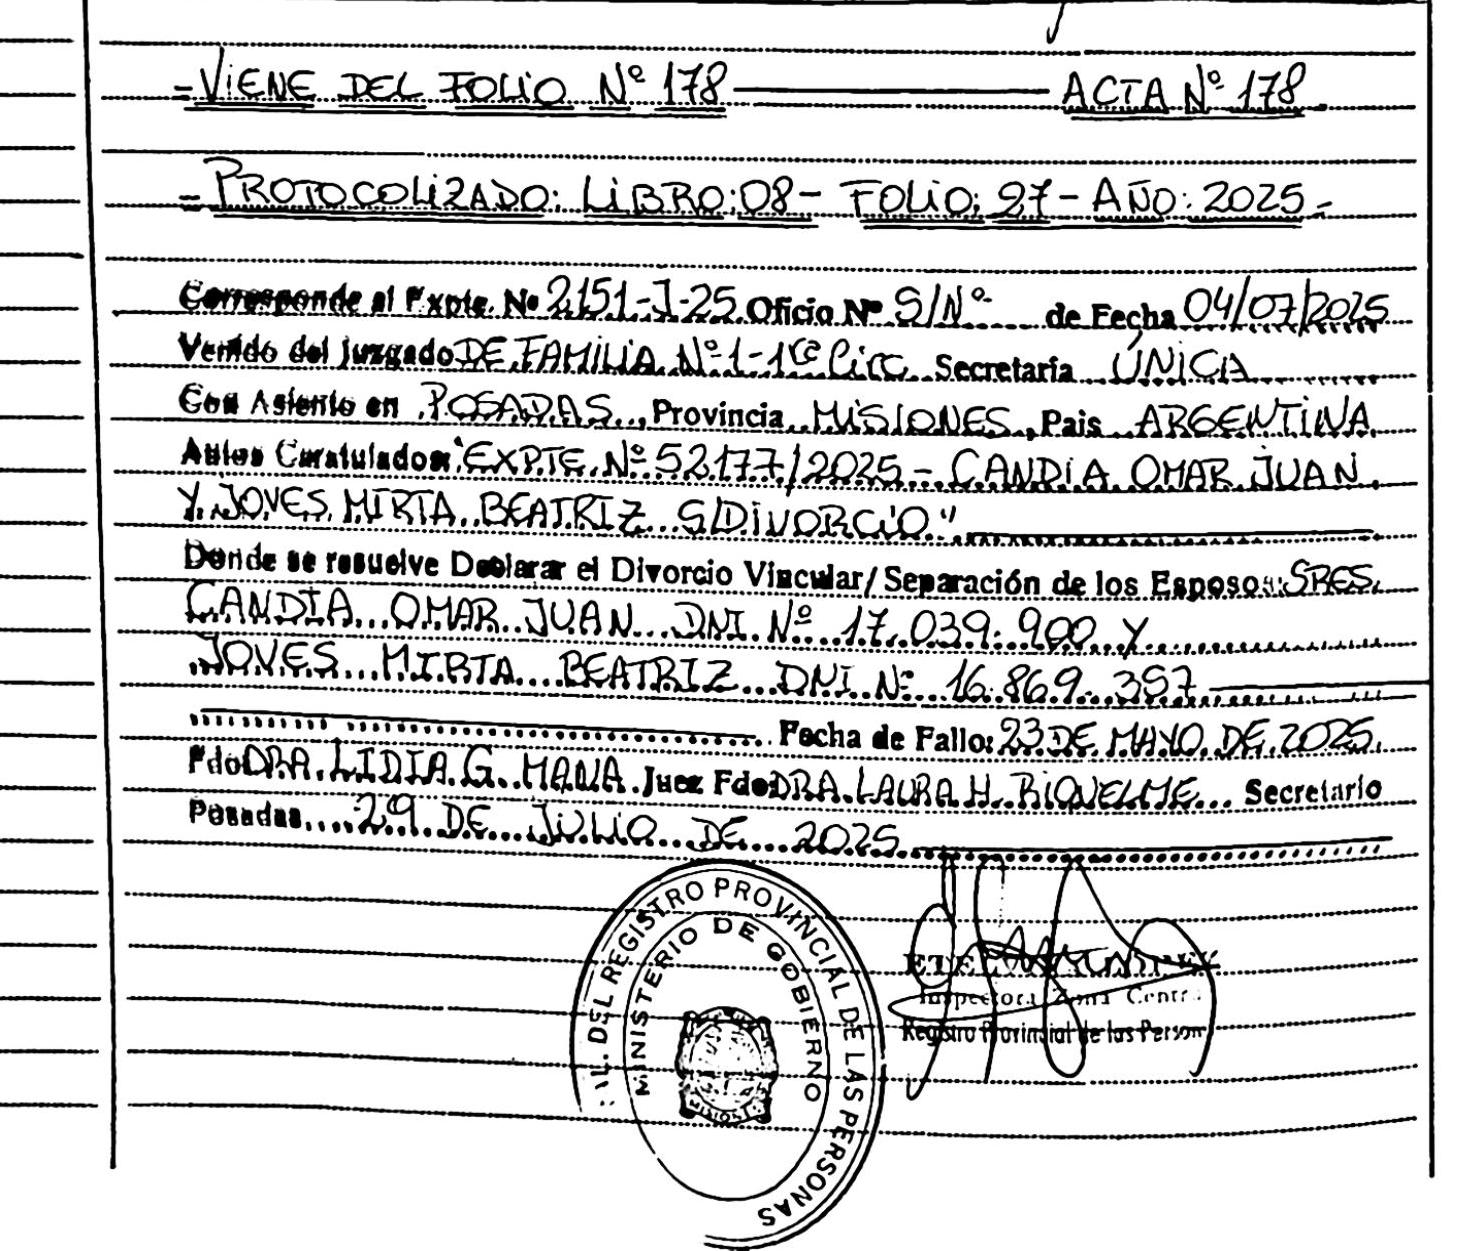 =VIENE DEL FOLIO Nº 178 ACTA Nº 178.
=PROTOCOLIZADO: LIBRO: 08- FOLIO: 27- AÑO: 2025-
Corresponde al Expte. Nº 2151-J-25 Oficio Nº S/Nº de Fecha 04/07/2025
Venido del Juzgado DE FAMILIA Nº 1- 1ra Circ. Secretaría ÚNICA
Con Asiento en POSADAS, Provincia MISIONES, Pais ARGENTINA
Autos Caratulados: "EXPTE. Nº 52177/2025- CANDIA OMAR JUAN
Y JOVES MIRTA BEATRIZ S/DIVORCIO"
Donde se resuelve Declarar el Divorcio Vincular/Separación de los Esposos: SRES.
CANDIA OMAR JUAN DNI Nº 17.039.900 Y
JOVES MIRTA BEATRIZ DNI Nº 16.869.357
Fecha de Fallo: 23 DE MAYO DE 2025.
Fdo DRA. LIDIA G. Juez Fdo DRA. LAURA H. RIQUELME Secretario
Posadas 29 DE JULIO DE 2025
DEL REGISTRO PROVINCIAL DE LAS PERSONAS
MINISTERIO DE GOBIERNO
Inspectora Zona
Registro Provincial de las Person